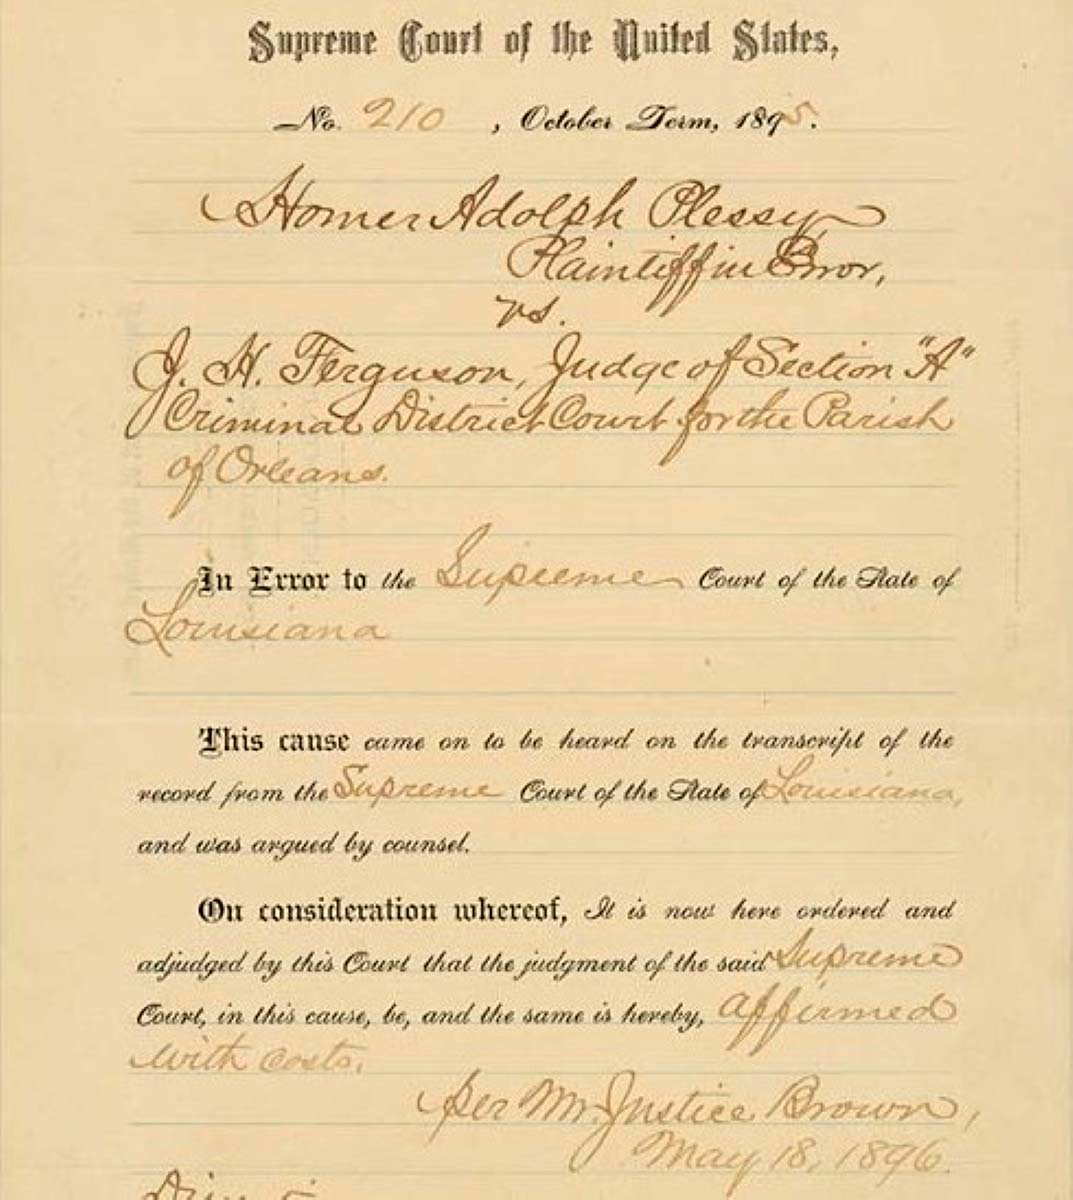 Supreme Court of the United States,
No. 210, October Term, 1895.
Homer Adolph Plessy,
Plaintiff in Error,
vs.
J. H. Ferguson, Judge of Section "A"
Criminal District Court for the Parish
of Orleans.
In Error to the Supreme Court of the State of
Louisiana
This cause came on to be heard on the transcript of the
record from the Supreme Court of the State of Louisiana,
and was argued by counsel.
On consideration whereof, It is now here ordered and
adjudged by this Court that the judgment of the said Supreme
Court, in this cause, be, and the same is hereby, affirmed
with costs.
per Mr. Justice Brown,
May 18, 1896.